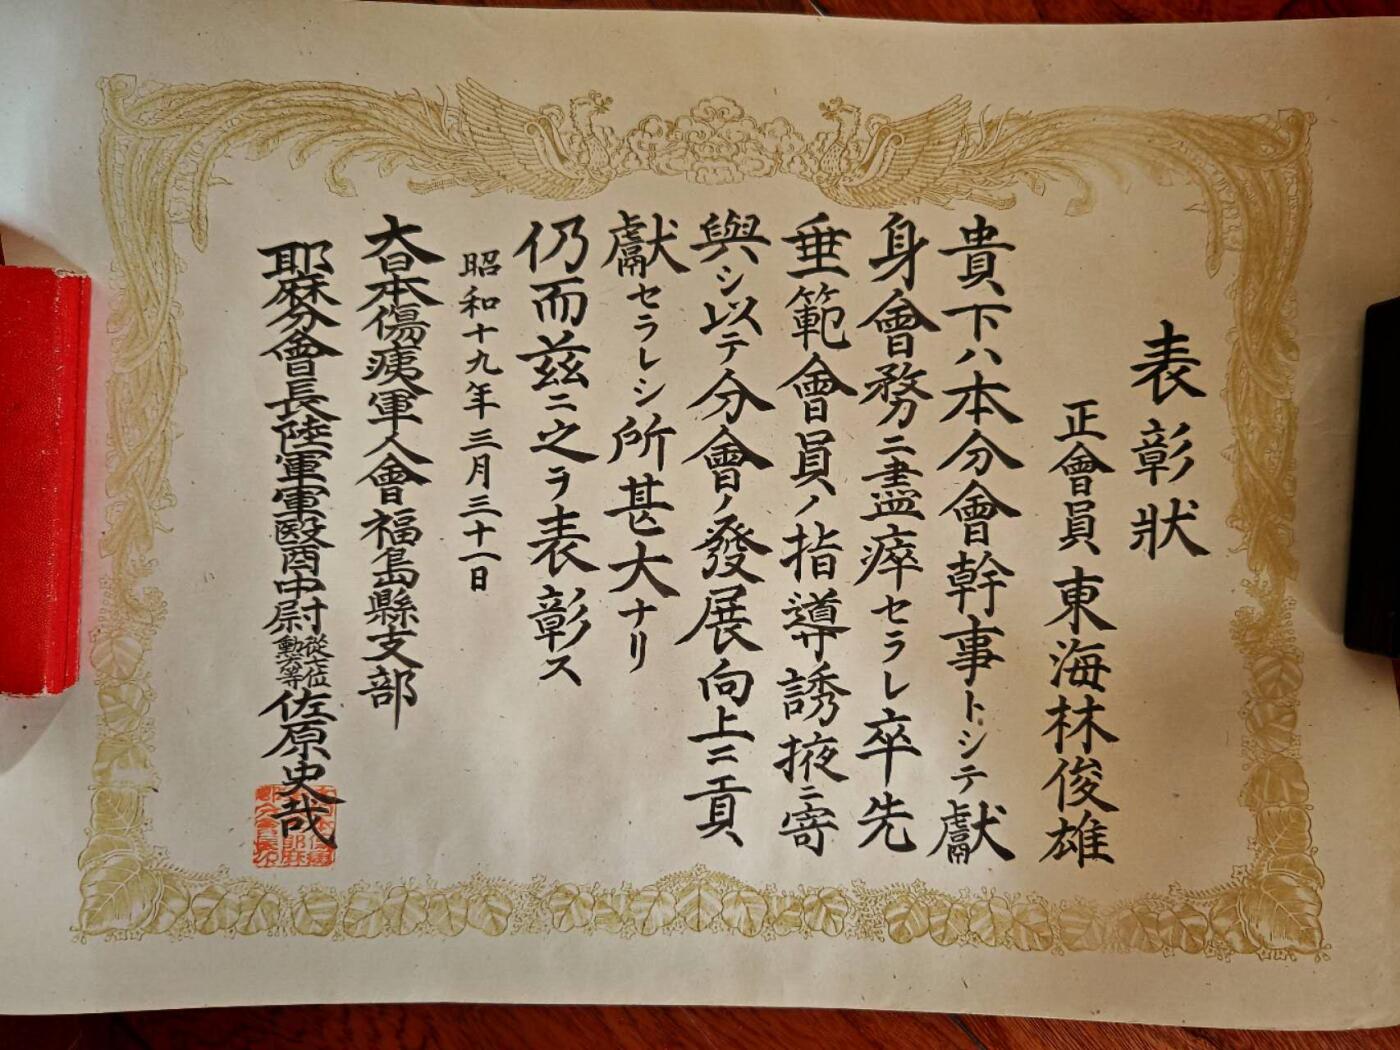 表彰狀
正會員 東海林俊雄
貴下ハ本分會幹事トシテ獻
身會務ニ盡瘁セラレ卒先
垂範會員ノ指導誘掖ニ寄
與シ以テ分會ノ發展向上ニ貢
獻セラレシ所甚大ナリ
仍而茲ニ之ヲ表彰ス
昭和十九年三月三十一日
大日本傷痍軍人會福島縣支部
耶麻分會長陸軍軍醫中尉從七位勳六等佐原史哉